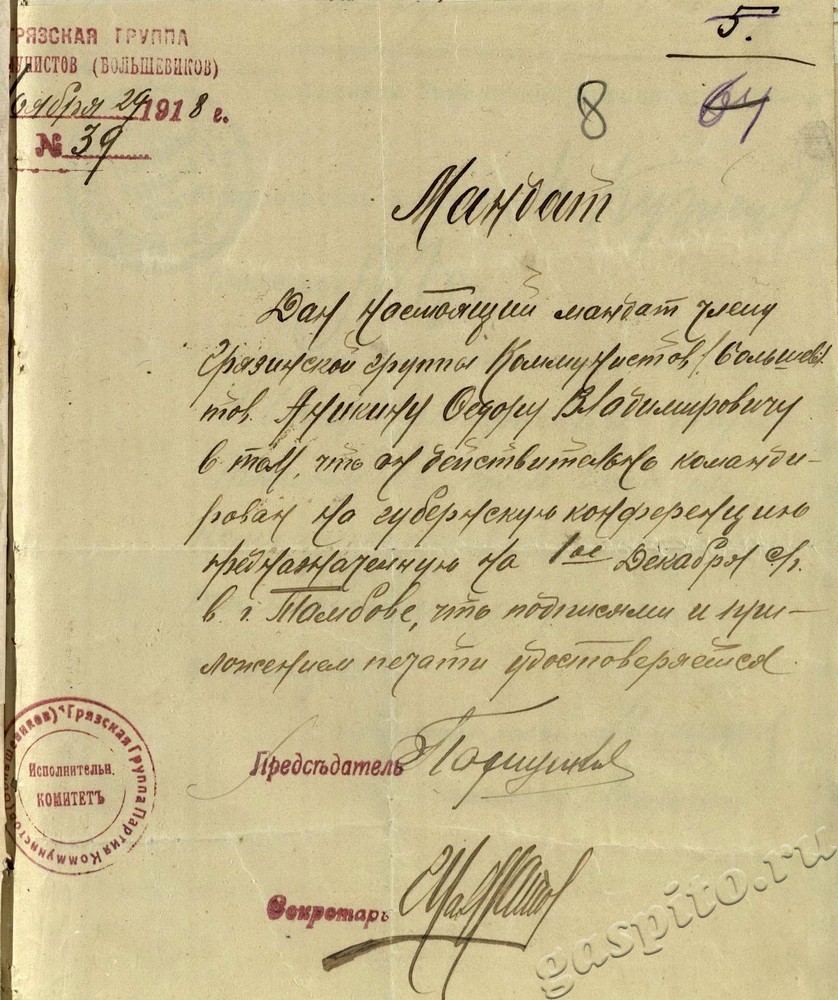 5.
РЯЗСКАЯ ГРУППА
МУНИСТОВ (БОЛЬШЕВИКОВ)
оября 29 1918 г.
№ 39
8
64
Мандат
Дан настоящий мандат члену
Грязинской группы Коммунистов (большеви
тов Аникину Федору Владимировичу
в том, что он действительно команди-
рован на губернскую конференцию
предназначенную на 1ое Декабря с/г.
в г. Тамбове, что подписями и при-
ложением печати удостоверяется
Грязская Группа Партия Коммунистов (Большевиков)
Исполнительн.
КОМИТЕТЪ
Предсѣдатель
Секретарь
gaspito.ru